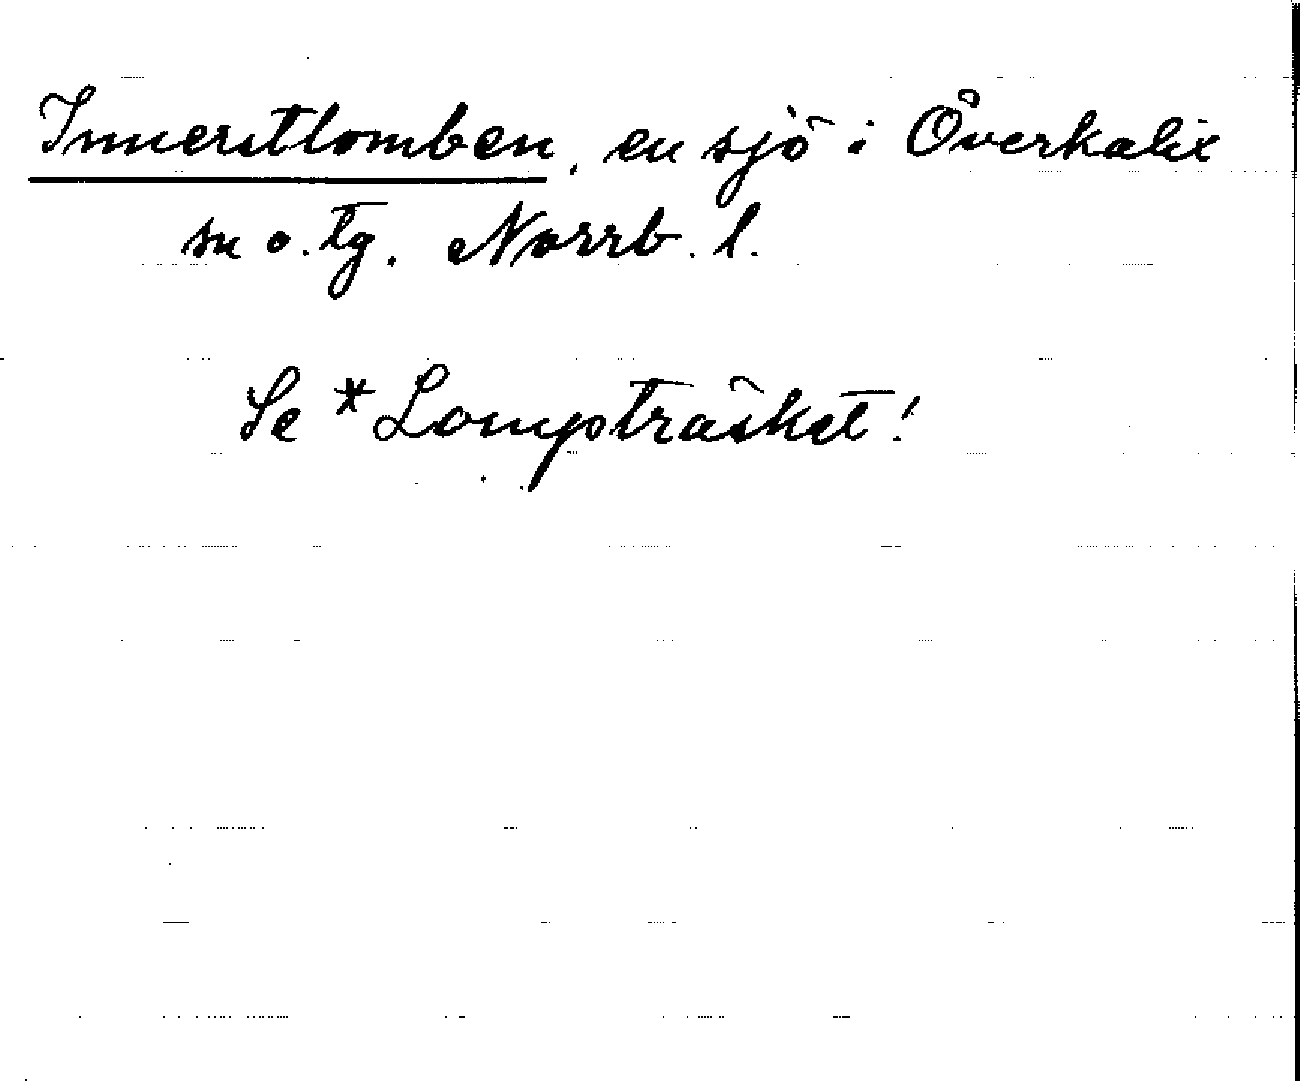 Innerstlomben, en sjö i Överkalix
sn o. tg. Norrb. l.
Se *Lompträsket!